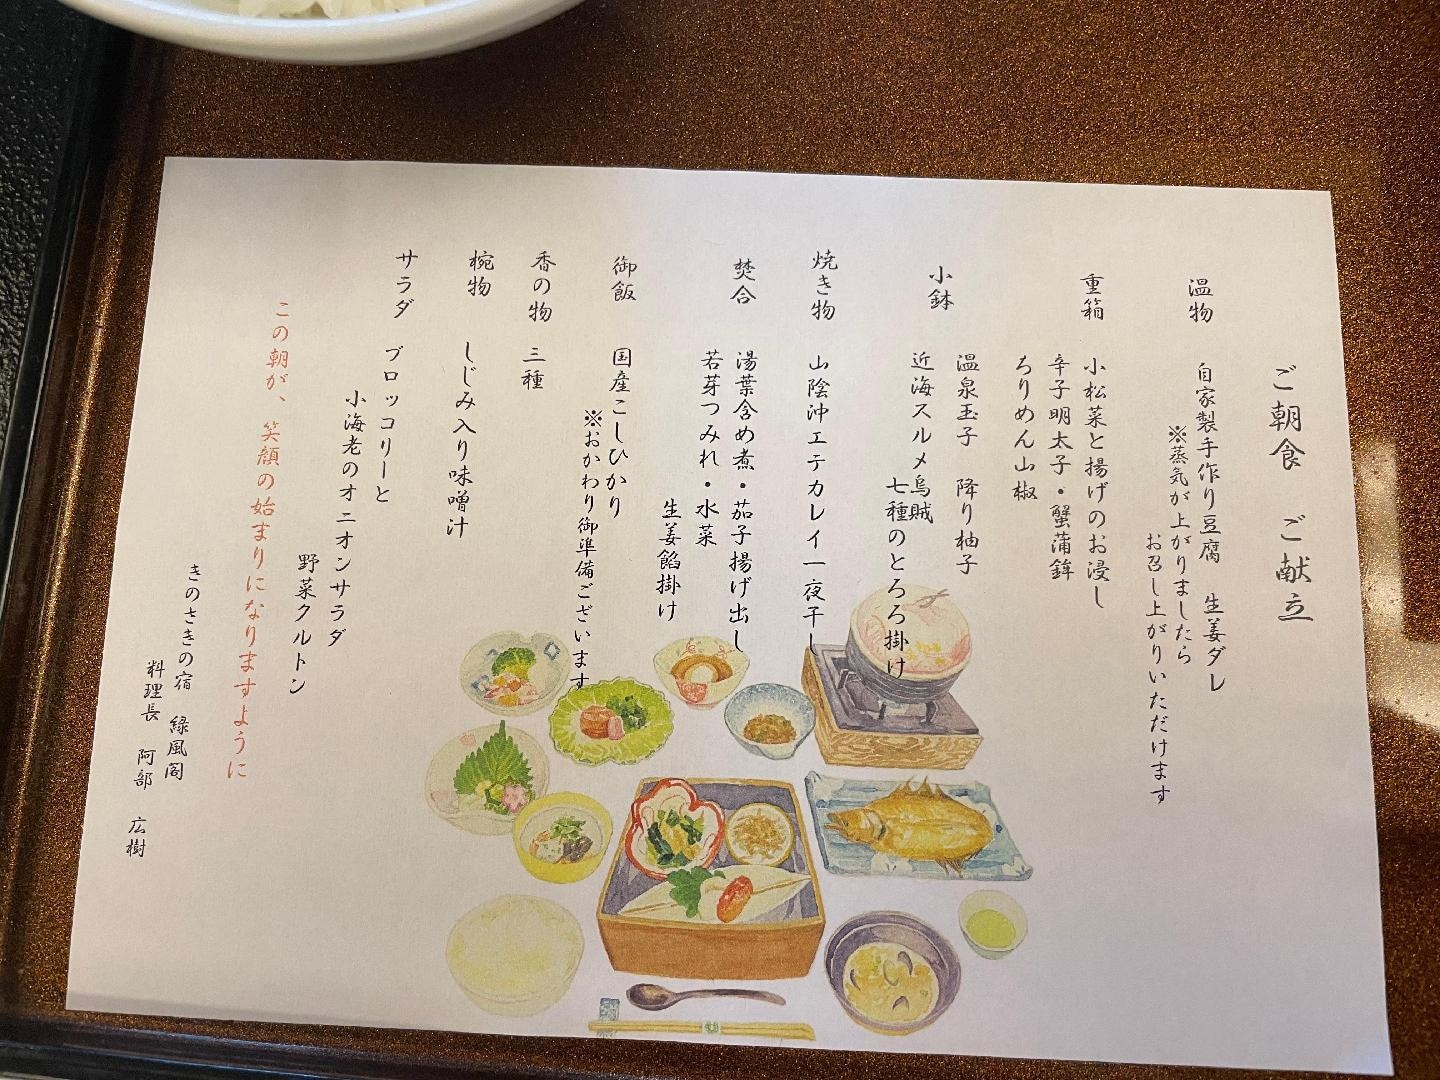 ご朝食　ご献立
温物　自家製手作り豆腐　生姜ダレ
※蒸気が上がりましたら
お召し上がりいただけます
重箱　小松菜と揚げのお浸し
辛子明太子・蟹蒲鉾
ちりめん山椒
小鉢　温泉玉子　降り柚子
近海スルメ烏賊
七種のとろろ掛け
焼き物　山陰沖エテカレイ一夜干し
焚合　湯葉含め煮・茄子揚げ出し
若芽つみれ・水菜
生姜餡掛け
御飯　国産こしひかり
※おかわり御準備ございます
香の物　三種
椀物　しじみ入り味噌汁
サラダ　ブロッコリーと
小海老のオニオンサラダ
野菜クルトン
この朝が、笑顔の始まりになりますように
きのさきの宿　緑風閣
料理長　阿部　広樹